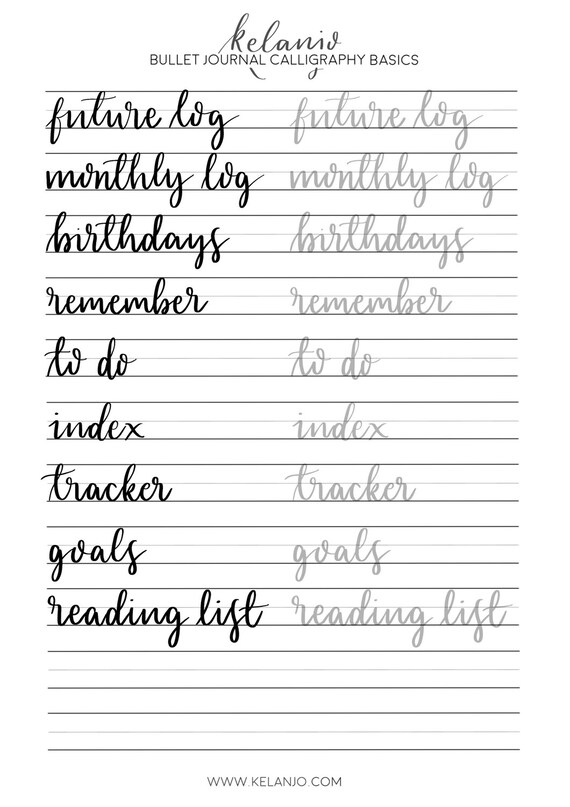 kelanjo
BULLET JOURNAL CALLIGRAPHY BASICS
future log future log
monthly log monthly log
birthdays birthdays
remember remember
to do to do
index index
tracker tracker
goals goals
reading list reading list
WWW.KELANJO.COM